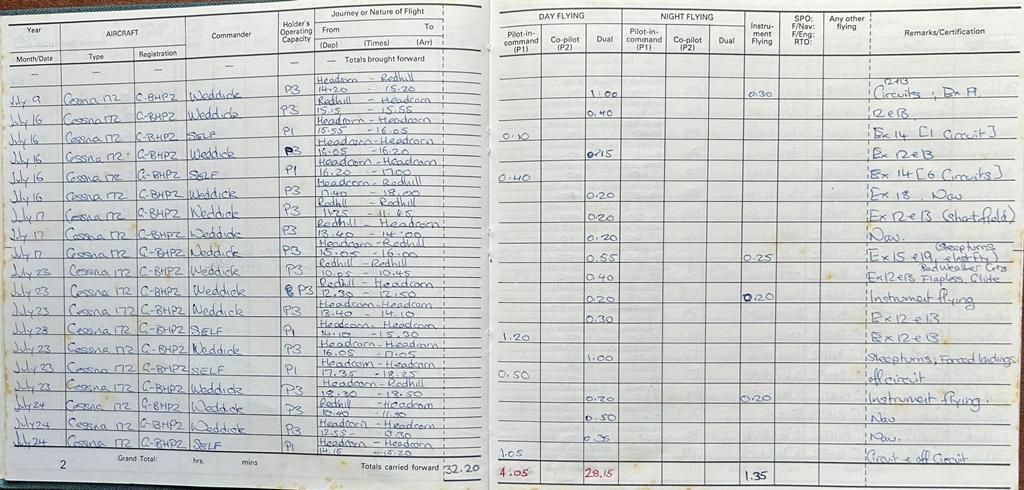 Year
AIRCRAFT
Commander
Holder's Operating Capacity
Journey or Nature of Flight
Month/Date
Type
Registration
From To
(Dep) (Times) (Arr)
— — — — — Totals brought forward
July 9 Cessna 172 G-BHPZ Weddick P3 Headcorn - Redhill 14.20 - 15.20
July 16 Cessna 172 G-BHPZ Weddick P3 Redhill - Headcorn 15.15 - 15.55
July 16 Cessna 172 G-BHPZ SELF P1 Headcorn - Headcorn 15.55 - 16.05
July 16 Cessna 172 G-BHPZ Weddick P3 Headcorn - Headcorn 16.05 - 16.20
July 16 Cessna 172 G-BHPZ SELF P1 Headcorn - Headcorn 16.20 - 17.00
July 16 Cessna 172 G-BHPZ Weddick P3 Headcorn - Redhill 17.40 - 18.00
July 17 Cessna 172 G-BHPZ Weddick P3 Redhill - Redhill 11.25 - 11.45
July 17 Cessna 172 G-BHPZ Weddick P3 Redhill - Headcorn 13.40 - 14.00
July 17 Cessna 172 G-BHPZ Weddick P3 Headcorn - Redhill 15.05 - 16.00
July 23 Cessna 172 G-BHPZ Weddick P3 Redhill - Redhill 10.05 - 10.45
July 23 Cessna 172 G-BHPZ Weddick P3 Redhill - Headcorn 12.30 - 12.50
July 23 Cessna 172 G-BHPZ Weddick P3 Headcorn - Headcorn 13.40 - 14.10
July 23 Cessna 172 G-BHPZ SELF P1 Headcorn - Headcorn 14.10 - 15.30
July 23 Cessna 172 G-BHPZ Weddick P3 Headcorn - Headcorn 16.05 - 17.05
July 23 Cessna 172 G-BHPZ SELF P1 Headcorn - Headcorn 17.35 - 18.25
July 23 Cessna 172 G-BHPZ Weddick P3 Headcorn - Redhill 18.30 - 18.50
July 24 Cessna 172 G-BHPZ Weddick P3 Redhill - Headcorn 10.40 - 11.30
July 24 Cessna 172 G-BHPZ Weddick P3 Headcorn - Headcorn 12.55
July 24 Cessna 172 G-BHPZ SELF P1 Headcorn - Headcorn 14.15 - 15.20
2 Grand Total: hrs. mins Totals carried forward 32.20
DAY FLYING NIGHT FLYING
Pilot-in-command (P1) Co-pilot (P2) Dual Pilot-in-command (P1) Co-pilot (P2) Dual Instru-ment Flying SPO: F/Nav: F/Eng: RTO: Any other flying Remarks/Certification
1.00 0.30 12 & 13 Circuits; Ex 19.
0.40 12 & 13.
0.10 Ex 14 [1 Circuit]
0.15 Ex 12 & 13
0.40 Ex 14 [6 Circuits]
0.20 Ex 18. Nav
0.20 Ex 12 & 13 (shortfield)
0.20 Nav.
0.55 0.25 Ex 15 & 19, Steepturns
0.40 Ex 12 & 13 Bad Weather Flapless Glide
0.20 0.20 Instrument flying
0.30 Ex 12 & 13
1.20 Ex 12 & 13
1.00 Steepturns; Forced landings
0.50 off circuit
0.20 0.20 Instrument flying.
0.50 Nav
0.35 Nav.
1.05 Circuit & off Circuit
4.05 28.15 1.35